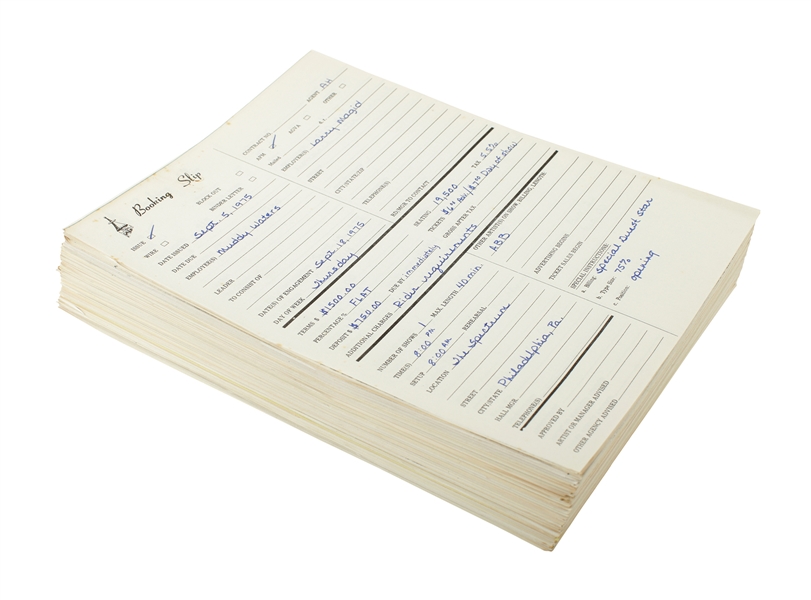 Booking Slip
ISSUE ✓ BLOCK OUT
WIRE BINDER LETTER
DATE ISSUED Sept. 5, 1975
DATE DUE
EMPLOYEE(S) Muddy Waters
LEADER
TO CONSIST OF
DATE(S) OF ENGAGEMENT Sept. 18, 1975
DAY OF WEEK Thursday
TERMS $ $1500.00
PERCENTAGE % FLAT
DEPOSIT $ $750.00 DUE BY immediately
ADDITIONAL CHARGES Rider requirements
NUMBER OF SHOWS 1 MAX. LENGTH 40 min.
TIME(S) 8:00 PM
SETUP 8:00 AM REHEARSAL
LOCATION The Spectrum
STREET
CITY/STATE Philadelphia, Pa.
HALL MGR.
TELEPHONE(S)
APPROVED BY
ARTIST OR MANAGER ADVISED
OTHER AGENCY ADVISED
CONTRACT NO. AGENT AH
AFM ✓ AGVA OTHER
EMPLOYER(S) Larry Magid
STREET
CITY/STATE/ZIP
TELEPHONE(S)
RD/MGR TO CONTACT
SEATING 19,500 TAX
TICKETS Day of show
GROSS AFTER TAX
OTHER ARTIST(S) ON SHOW, BILLING, LENGTH
ABB
ADVERTISING BEGINS
TICKET SALES BEGIN
SPECIAL INSTRUCTIONS
a. Billing Special Guest Star
b. Type Size 75%
c. Position opening